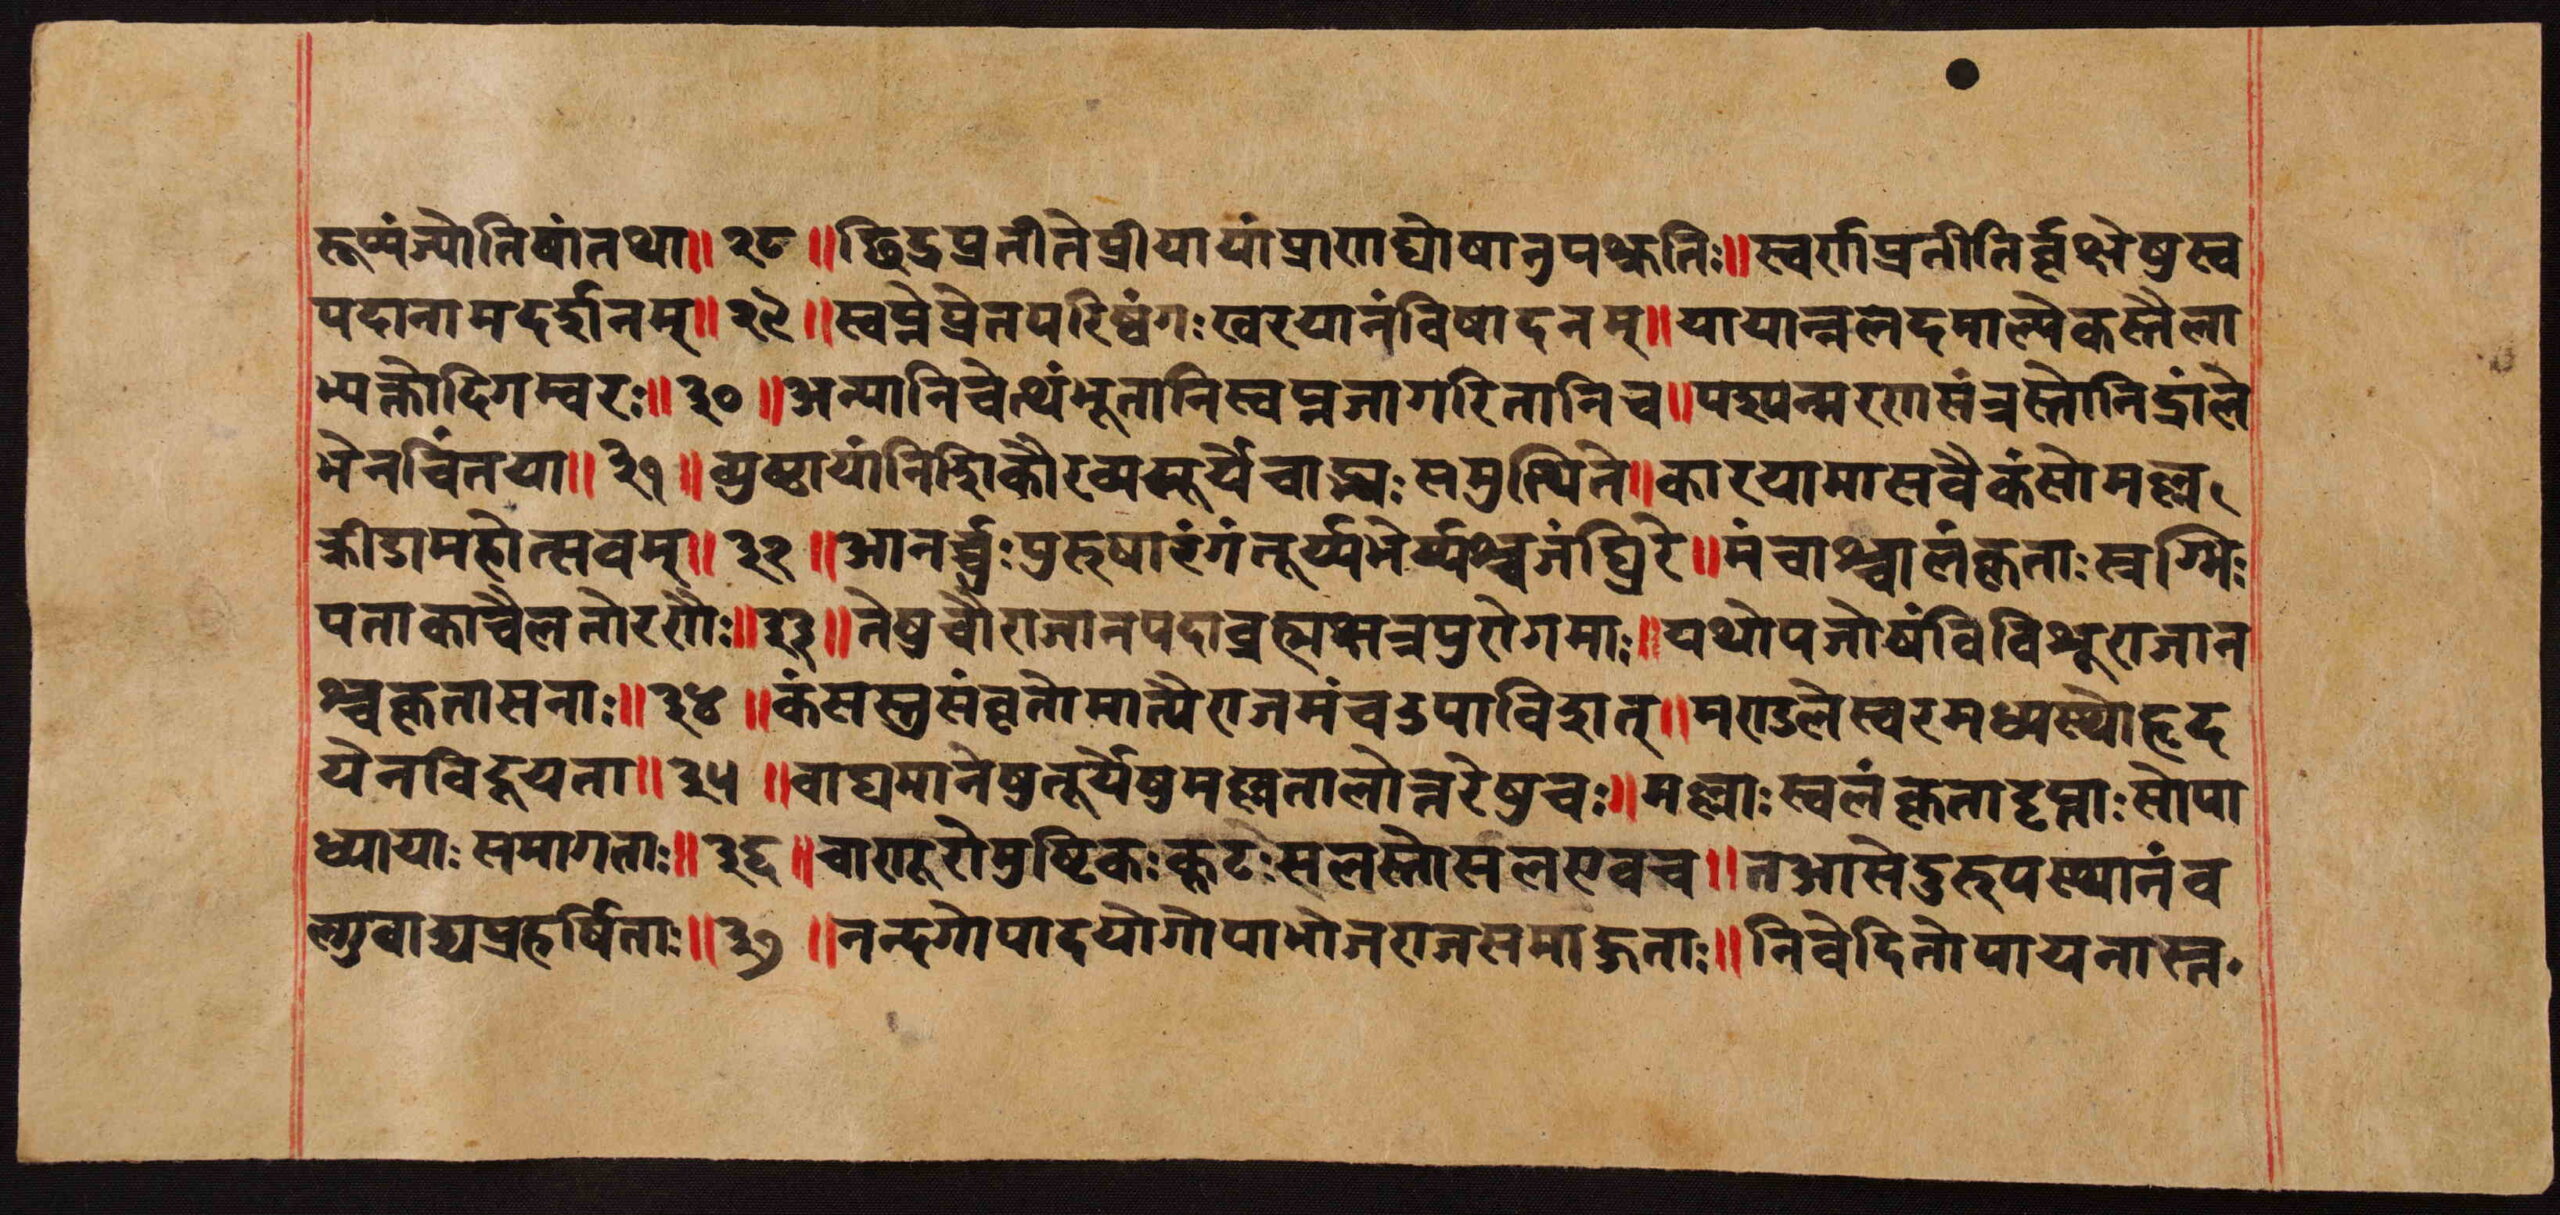 रूप्यंज्योतिषांतथा॥२८॥छिद्रप्रतीतेप्रीयायांप्राणघोषानुपश्रुतिः॥स्वर्णाप्रतीतिर्वृक्षेषुस्व
पदानामदर्शनम्॥२९॥स्वप्नेप्रेतपरिष्वंगःखरयानंविषादनम्॥यायान्नलदमाल्येकस्तैला
भ्यक्तोदिगम्बरः॥३०॥अन्यानिचेत्थंभूतानिस्वप्नजागरितानिच॥पश्यन्मरणसंत्रस्तोनिद्रांले
भेनचिंतया॥३१॥व्युष्टायांनिशिकौरव्यसूर्येचाद्भ्यःसमुत्थिते॥कारयामासवैकंसोमल्ल
क्रीडामहोत्सवम्॥३२॥आनर्च्चुःपुरुषारंगंतूर्य्यभेर्य्यश्चजंघ्रिरे॥मंचाश्चालंकृताःस्रग्भिः
पताकाचैलतोरणैः॥३३॥तेषुचौराजानपदाब्रह्मक्षत्रपुरोगमाः॥यथोपजोष्यंविविशूराजान
श्चकृतासनाः॥३४॥कंसस्तुसंवृतोमात्यैराजमंचउपाविशत्॥मण्डलेस्वरमध्यस्थोहृद
येनविदूयता॥३५॥वाद्यमानेषुतूर्येषुमल्लतालोत्तरेषुचः॥मल्लाःस्वलंकृतादृप्ताःसोपा
ध्यायाःसमागताः॥३६॥चाणूरोमुष्टिकःकूटःसलस्तोसलएवच॥तआसेदुरुपस्थानंव
ल्गुवाद्यप्रहर्षिताः॥३७॥नन्दगोपादयोगोपाभोजराजसमाहुताः॥निवेदितोपायनास्त